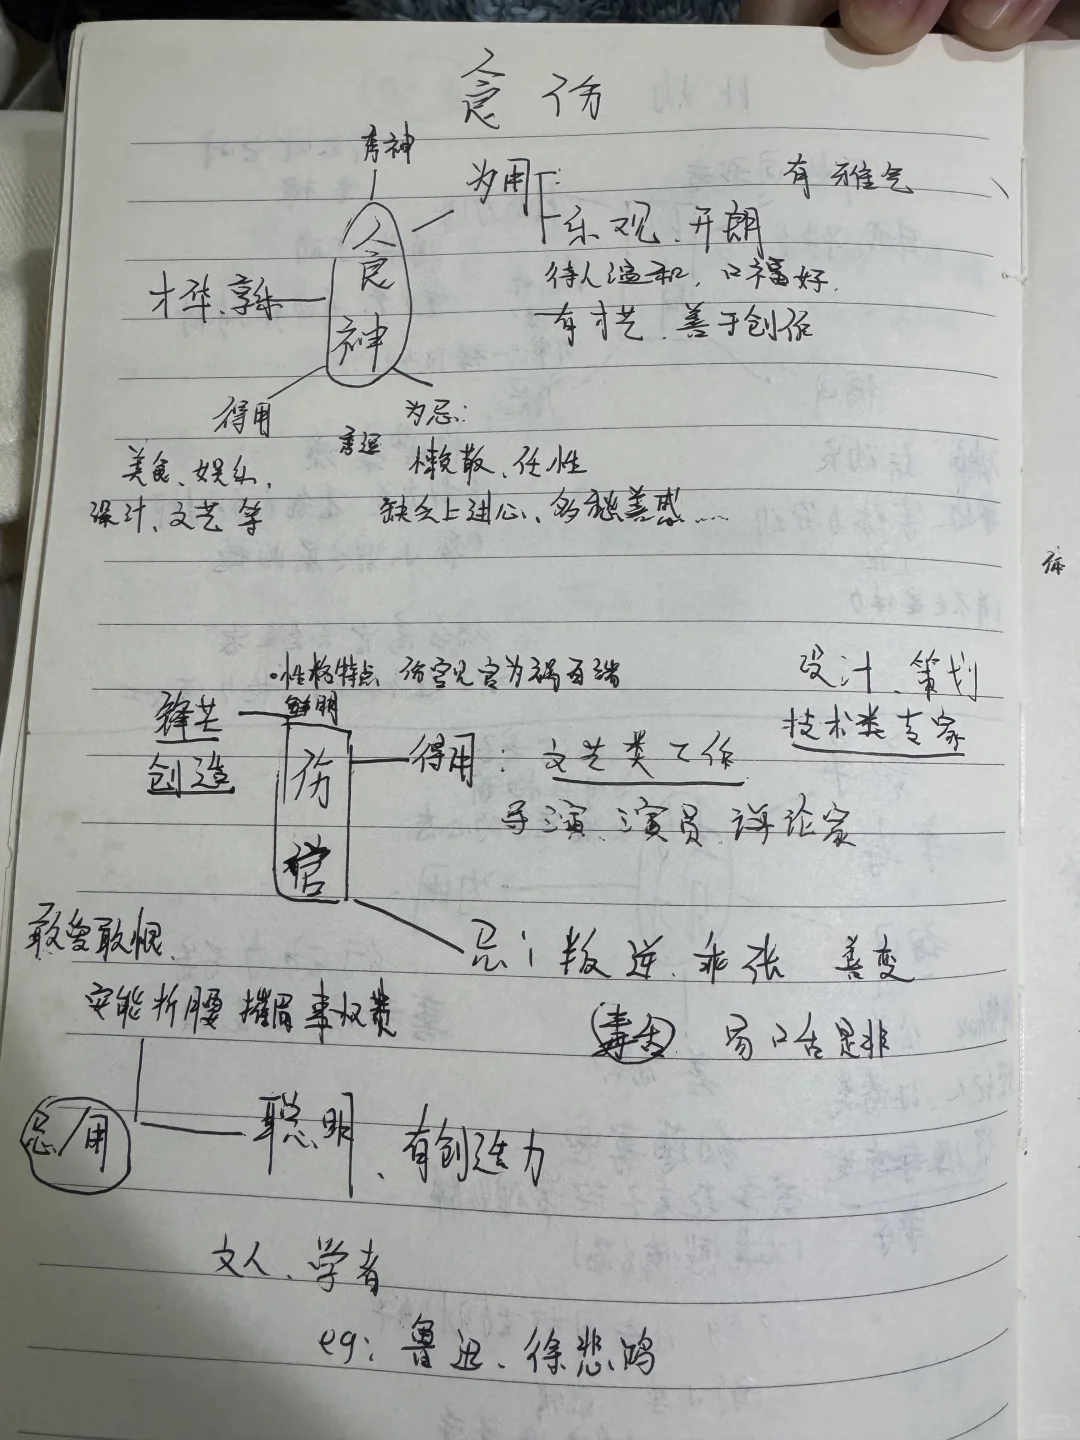 食 伤
寿神
为用:
有雅气
乐观、开朗
待人温和, 口福好,
有才艺、善于创作
食神
才华、享乐
得用
美食、娱乐,
设计、文艺等
为忌:
懒散、任性
缺乏上进心、多愁善感……
·性格特点 伤官见官为祸百端
鲜明
设计、策划
技术类专家
锋芒
创造
伤官
得用: 文艺类工作
导演、演员、评论家
敢爱敢恨、
忌: 叛逆、乖张 善变
安能折腰摧眉事权贵
毒舌 易口舌是非
忌/用
聪明、有创造力
文人、学者
eg: 鲁迅、徐悲鸿
体